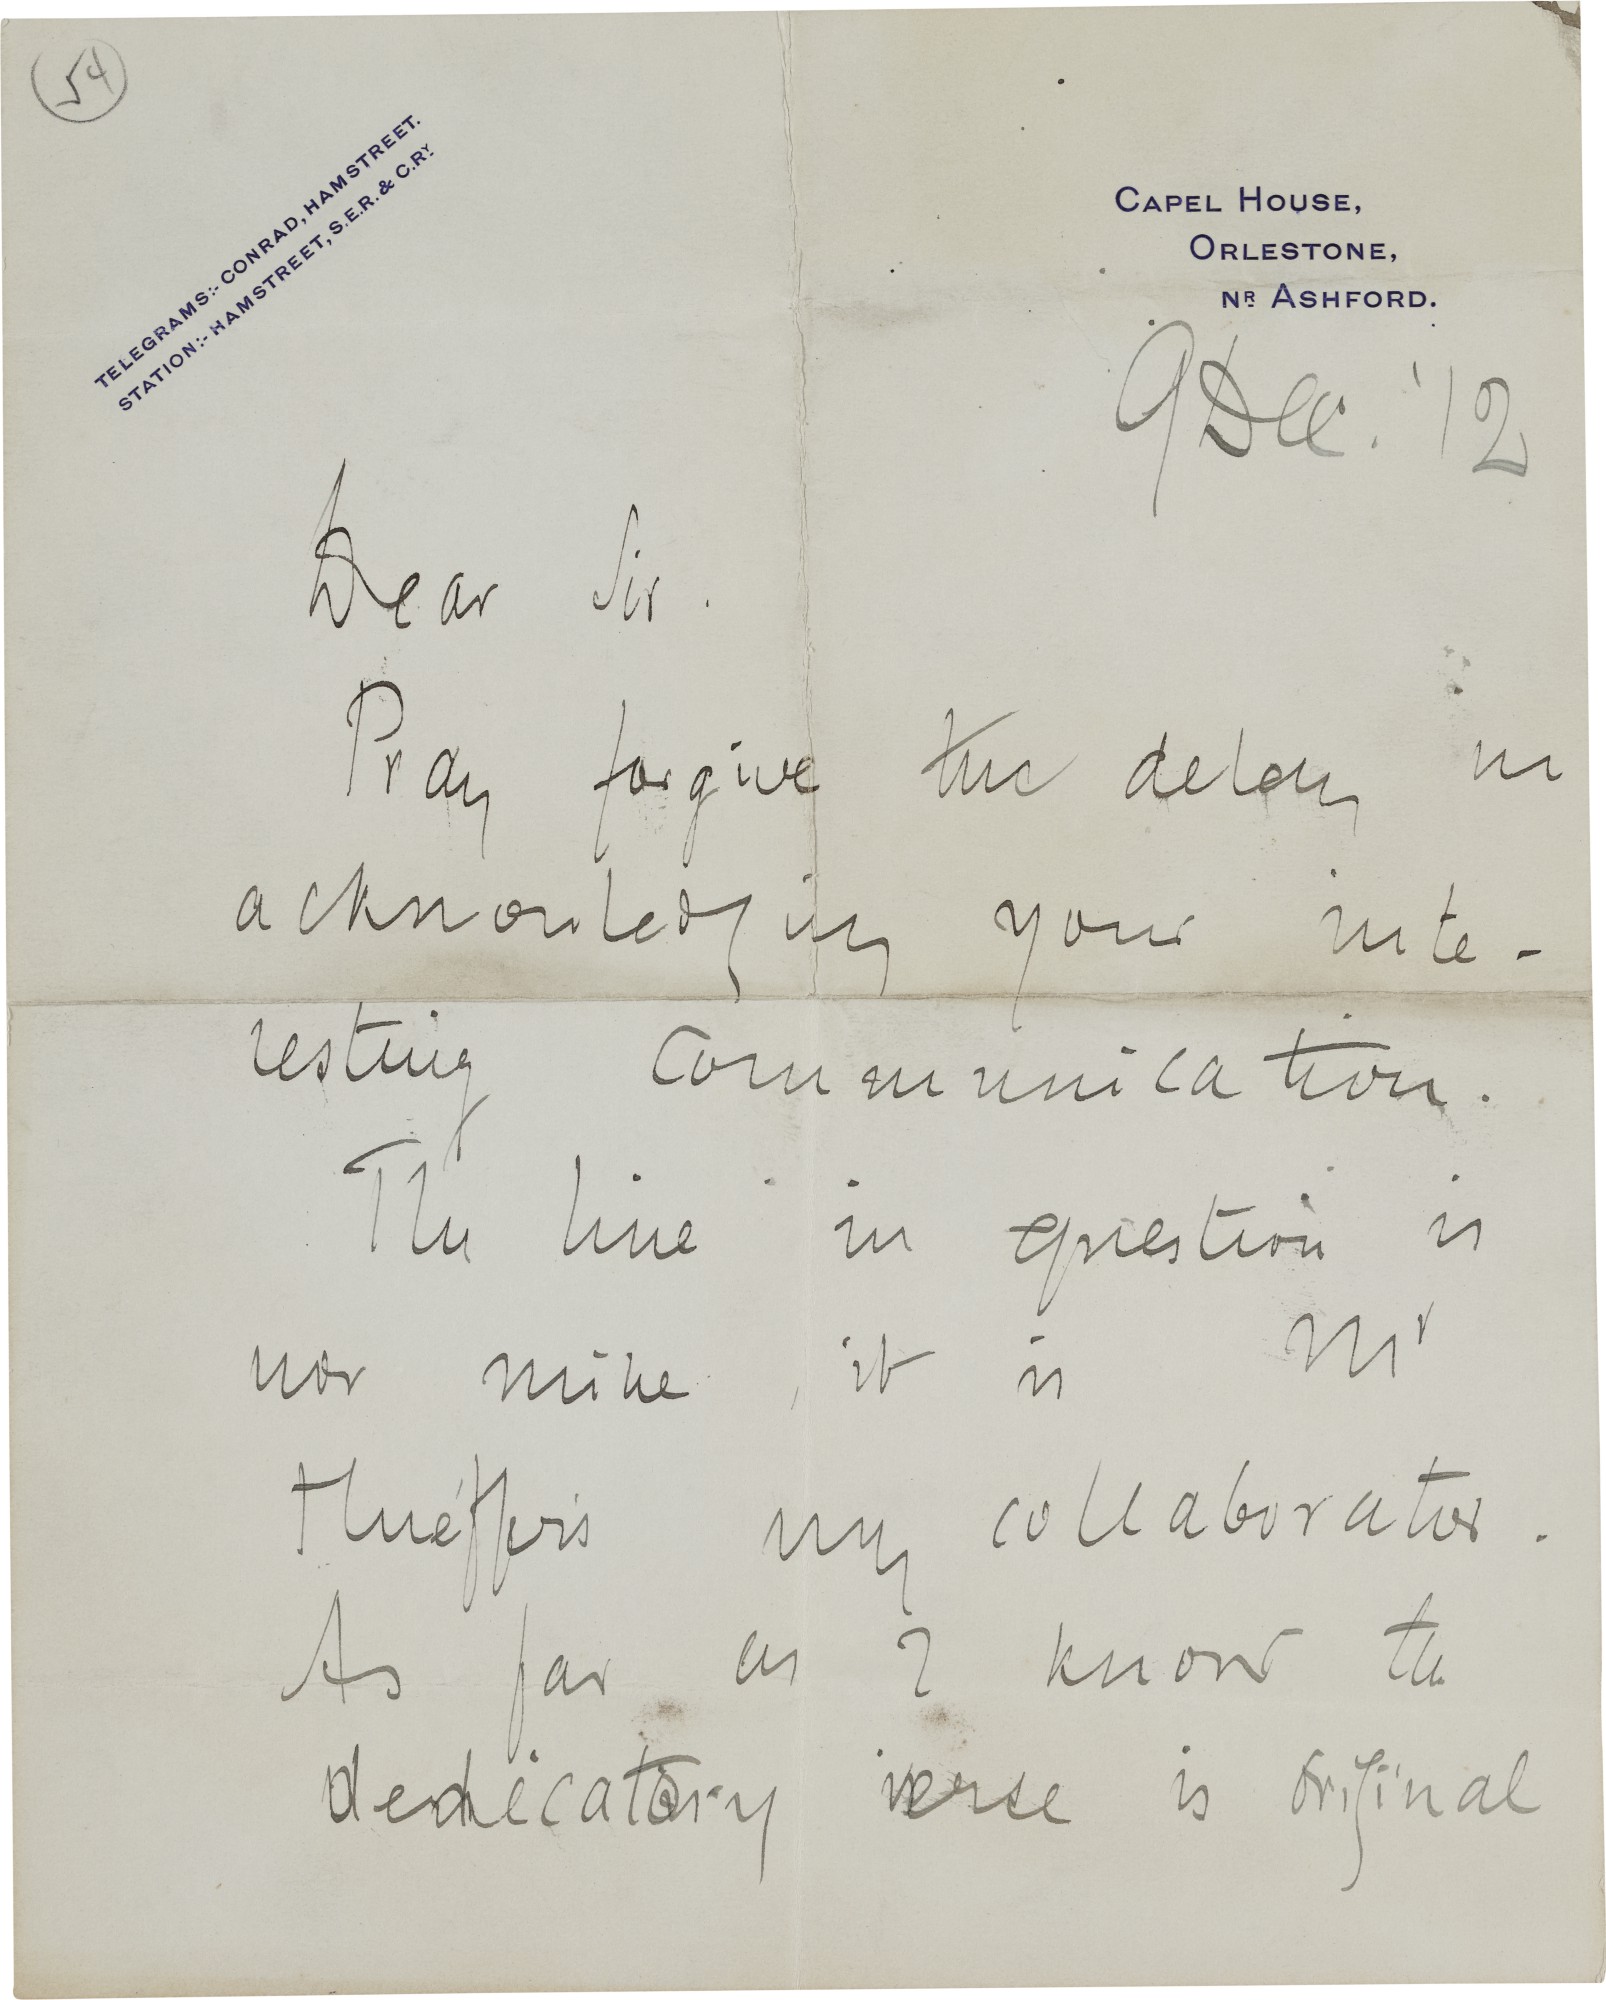 54
TELEGRAMS:- CONRAD, HAMSTREET.
STATION:- HAMSTREET, S.E.R. & C.RY.
CAPEL HOUSE,
ORLESTONE,
NR ASHFORD.
9 Dec. '12
Dear Sir.
Pray forgive the delay in
acknowledging your inte-
resting communication.
The line in question is
not mine, it is Mr
Hueffer's my collaborator.
As far as I know the
dedicatory verse is original